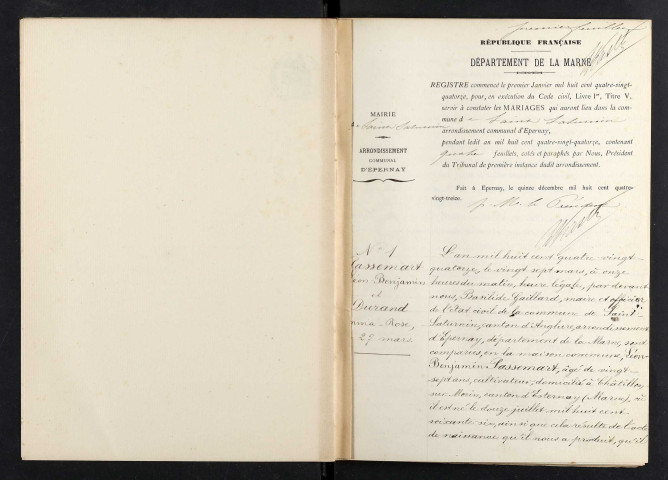 premier feuillet
RÉPUBLIQUE FRANÇAISE
DÉPARTEMENT DE LA MARNE
REGISTRE commencé le premier Janvier mil huit cent quatre-vingt-
quatorze, pour, en exécution du Code civil, Livre Ier, Titre V,
servir à constater les MARIAGES qui auront lieu dans la com-
mune d e Saint Saturnin
arrondissement communal d'Epernay,
pendant ledit an mil huit cent quatre-vingt-quatorze, contenant
quatre feuillets, cotés et paraphés par Nous, Président
du Tribunal de première instance dudit arrondissement.
Fait à Epernay, le quinze décembre mil huit cent quatre-
vingt-treize.
p. Mr. le Président
MAIRIE
Saint Saturnin
ARRONDISSEMENT
COMMUNAL
D'ÉPERNAY
N° 1
Passemart
Léon Benjamin
et
Durand
Emma Rose,
27 mars
L'an mil huit cent quatre-vingt-
quatorze, le vingt sept mars, à onze
heures du matin, heure légale, par devant
nous, Basilide Gaillard, maire et officier
de l'état civil de la commune de Saint-
Saturnin, canton d'Anglure, arrondissement
d'Epernay, département de la Marne, sont
comparus, en la maison commune, Léon
Benjamin Passemart, âgé de vingt-
sept ans, cultivateur, domicilié à Châtillon
sur Morin, canton d'Esternay (Marne), où
il est né le douze juillet mil huit cent
soixante six, ainsi que cela résulte de l'acte
de naissance qu'il nous a produit, qu'il